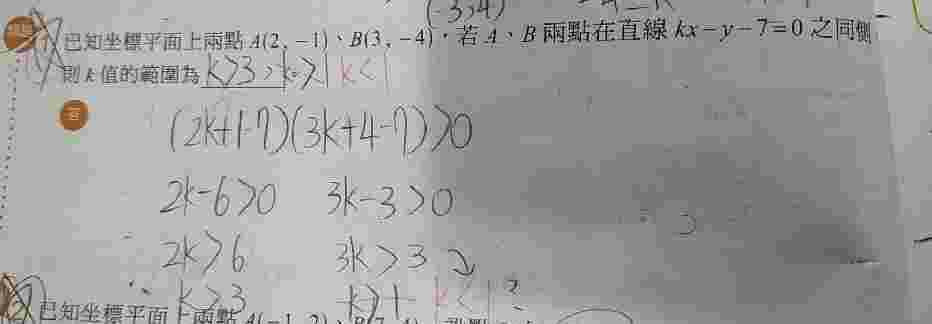 (-3,4)
已知坐標平面上兩點 A(2,-1)、B(3,-4)，若 A、B 兩點在直線 kx-y-7=0 之同側
則 k 值的範圍為 k>3, k>1 k<1
答
(2k+1-7)(3k+4-7)>0
2k-6>0 3k-3>0
2k>6 3k>3
∴ k>3 k>1 k<1?
已知坐標平面上兩點 A(-1,2)、B(7,4)